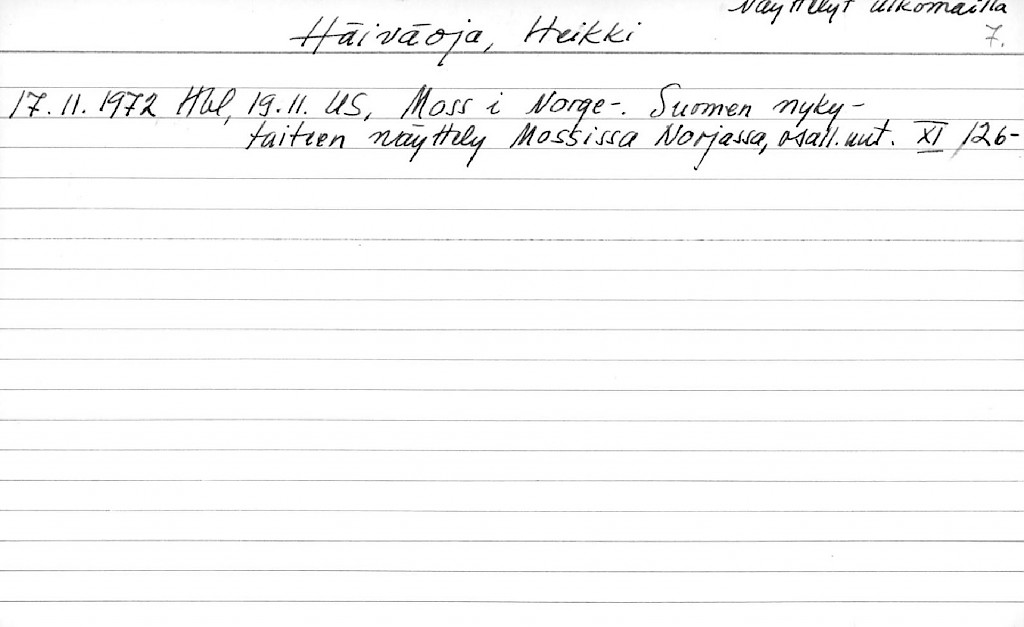 Näyttelyt ulkomailla
Häiväoja, Heikki 7.
17.11.1972 Hbl, 19.11. US, Moss i Norge-. Suomen nyky-
taiteen näyttely Mossissa Norjassa, osall. uut. XI /126-